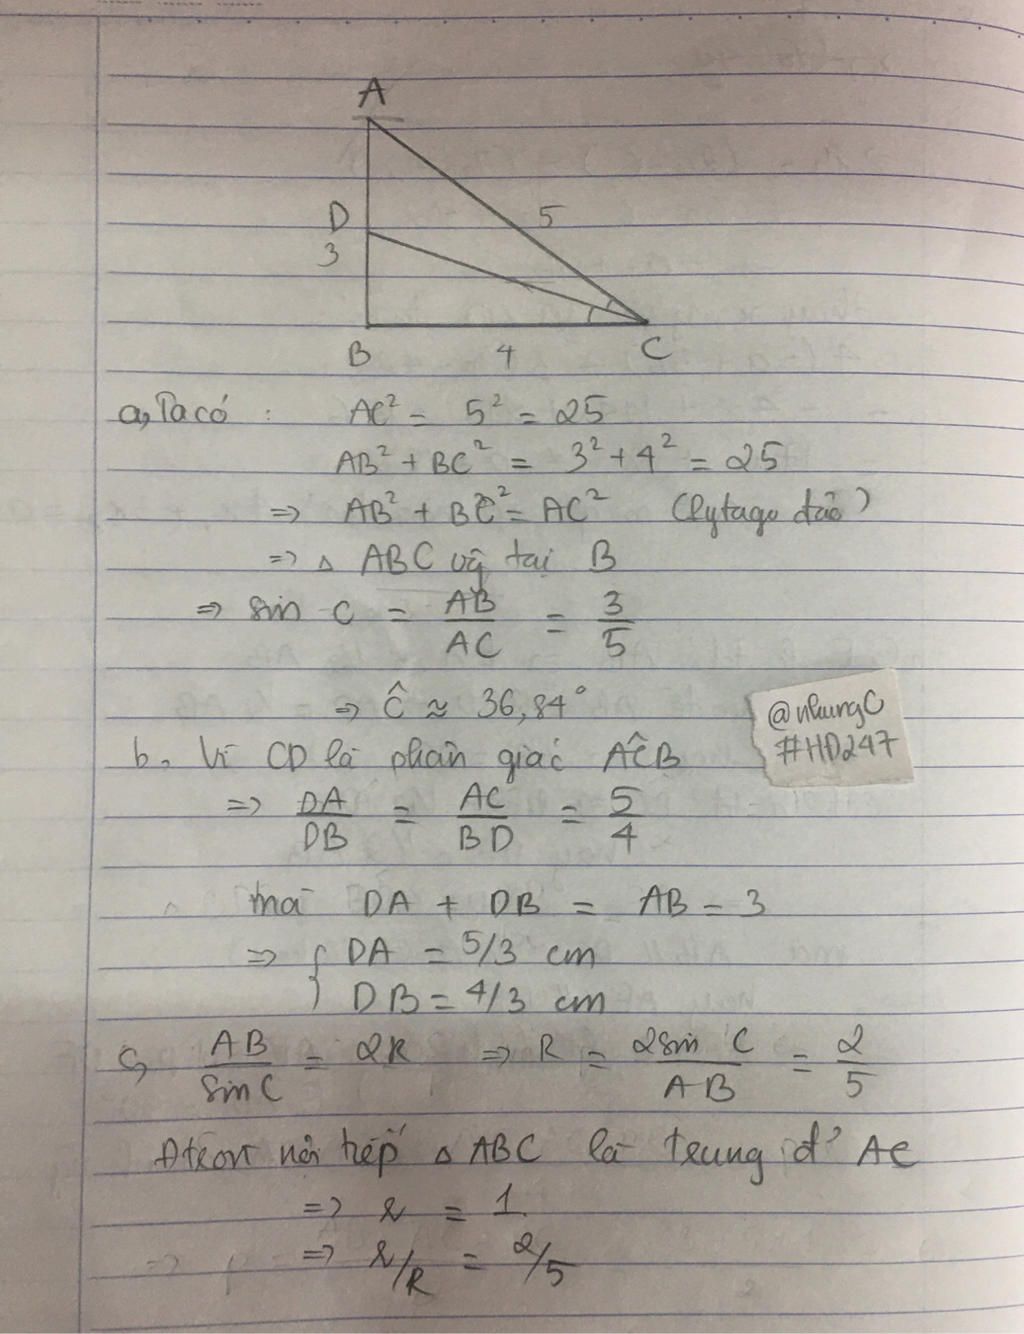 A
D
5
3
B
4
C
a, Ta có : AC² = 5² = 25
AB² + BC² = 3² + 4² = 25
=> AB² + BC² = AC² (Pytago đảo)
=> △ ABC vg̃ tại B
=> sin C = AB/AC = 3/5
=> Ĉ ≈ 36,84°
@nhungC
#HD247
b, Vì CD là phân giác AĈB
=> DA/DB = AC/BD = 5/4
mà DA + DB = AB = 3
=> { DA = 5/3 cm
DB = 4/3 cm
c, AB/sin C = 2R => R = 2sin C/AB = 2/5
nội tiếp △ ABC là trung đ' AC
=> r = 1
=> r/R = 2/5